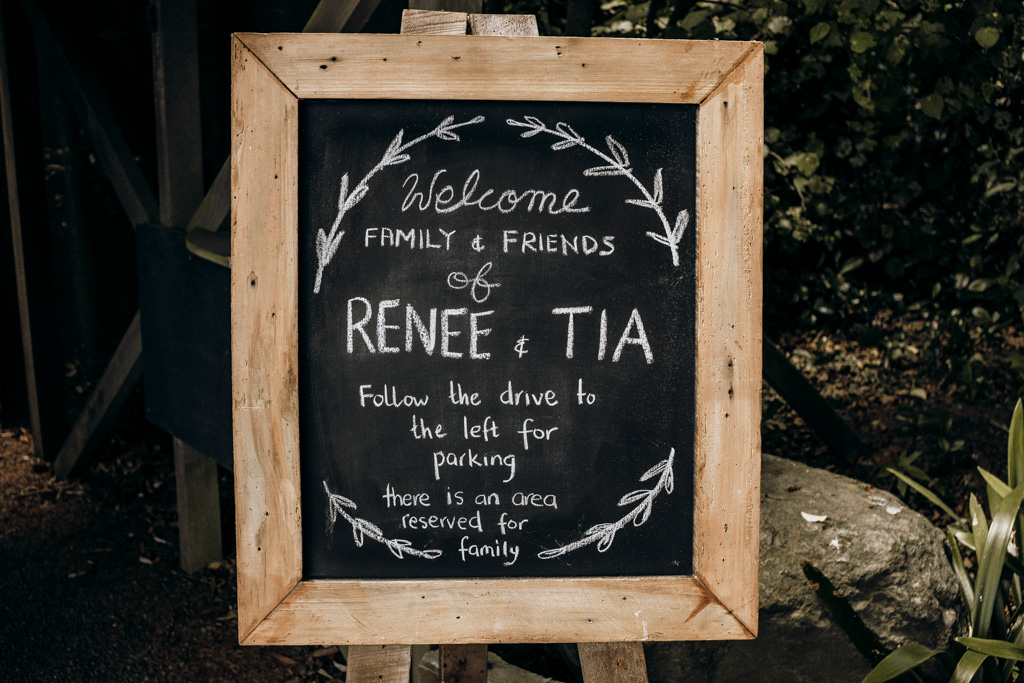 Welcome
FAMILY & FRIENDS
of
RENEE & TIA
Follow the drive to
the left for
parking
there is an area
reserved for
family